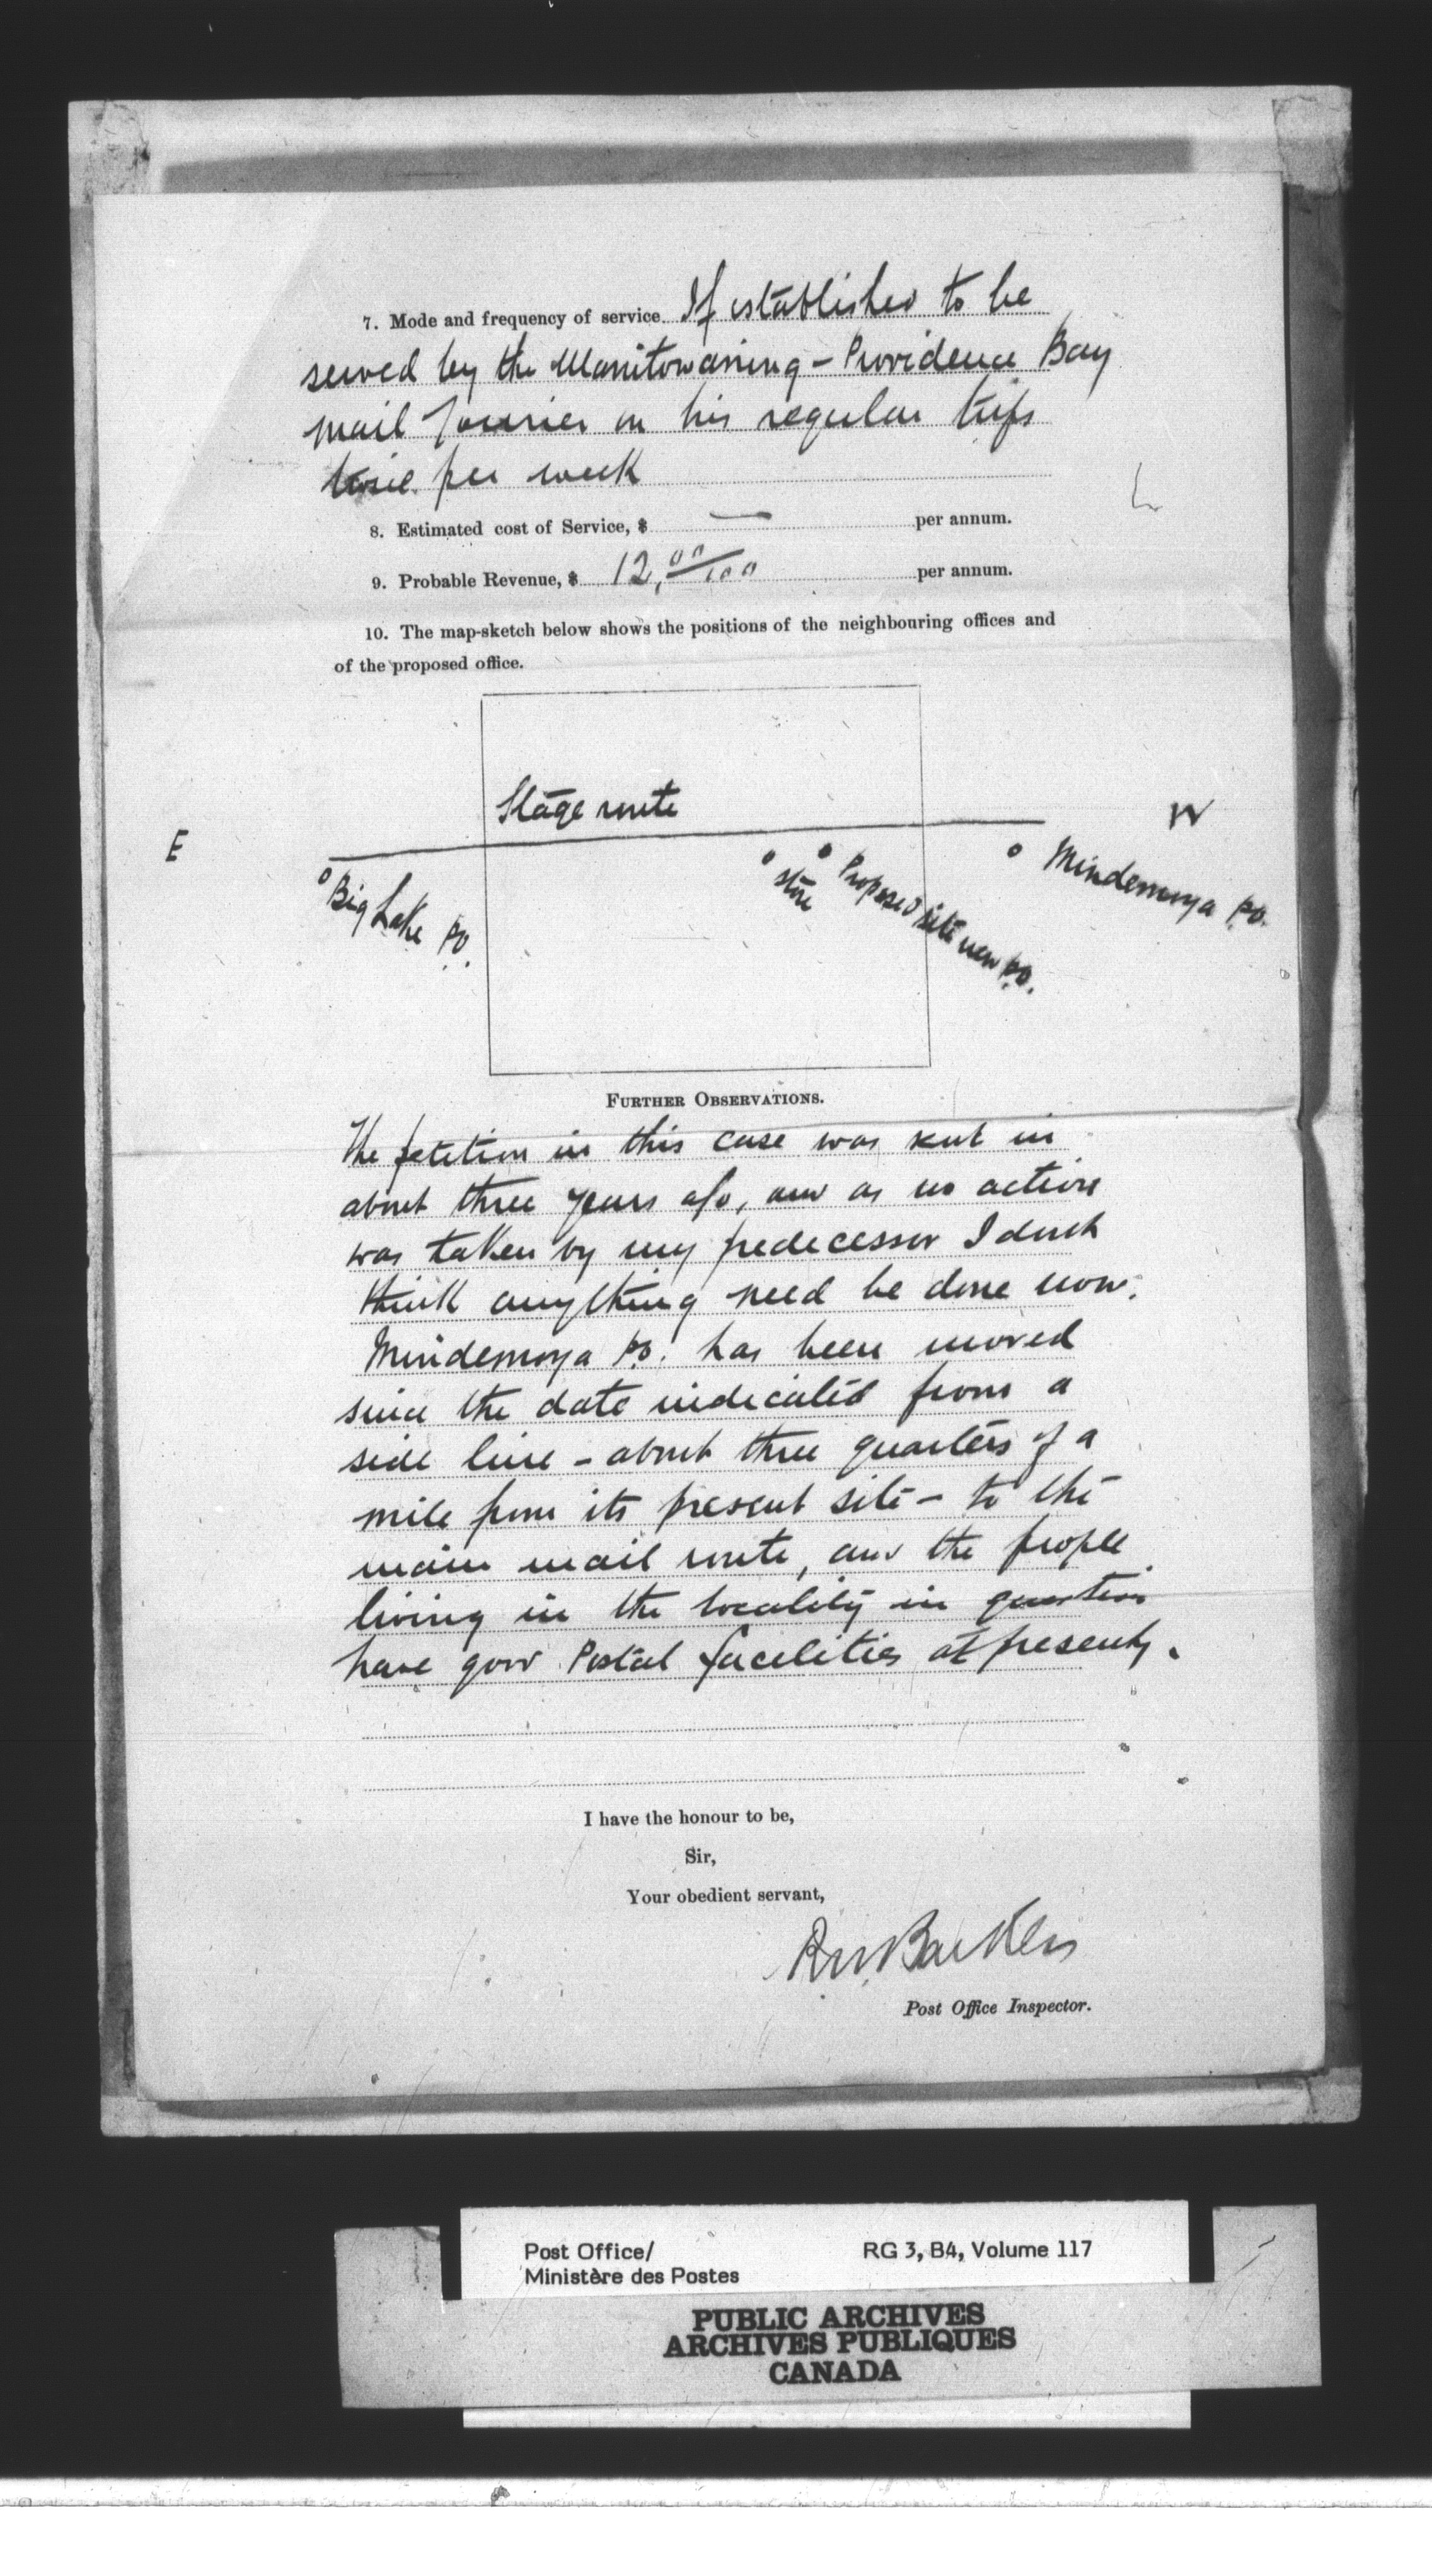 7. Mode and frequency of service If established to be
served by the Manitowaning - Providence Bay
mail Courier on his regular trips
twice per week
8. Estimated cost of Service, $ — per annum.
9. Probable Revenue, $ 12,00/100 per annum.
10. The map-sketch below shows the positions of the neighbouring offices and
of the proposed office.
Stage route
E
W
Big Lake P.O.
store
Proposed site new P.O.
Mindemoya P.O.
FURTHER OBSERVATIONS.
The petition in this case was sent in
about three years ago, and as no action
was taken by my predecessor I dont
think anything need be done now.
Mindemoya P.O. has been moved
since the date indicated from a
side line - about three quarters of a
mile from its present site - to the
main mail route, and the people
living in the locality in question
have good Postal facilities at present.
I have the honour to be,
Sir,
Your obedient servant,
Post Office Inspector.
Post Office/
Ministère des Postes
RG 3, B4, Volume 117
PUBLIC ARCHIVES
ARCHIVES PUBLIQUES
CANADA